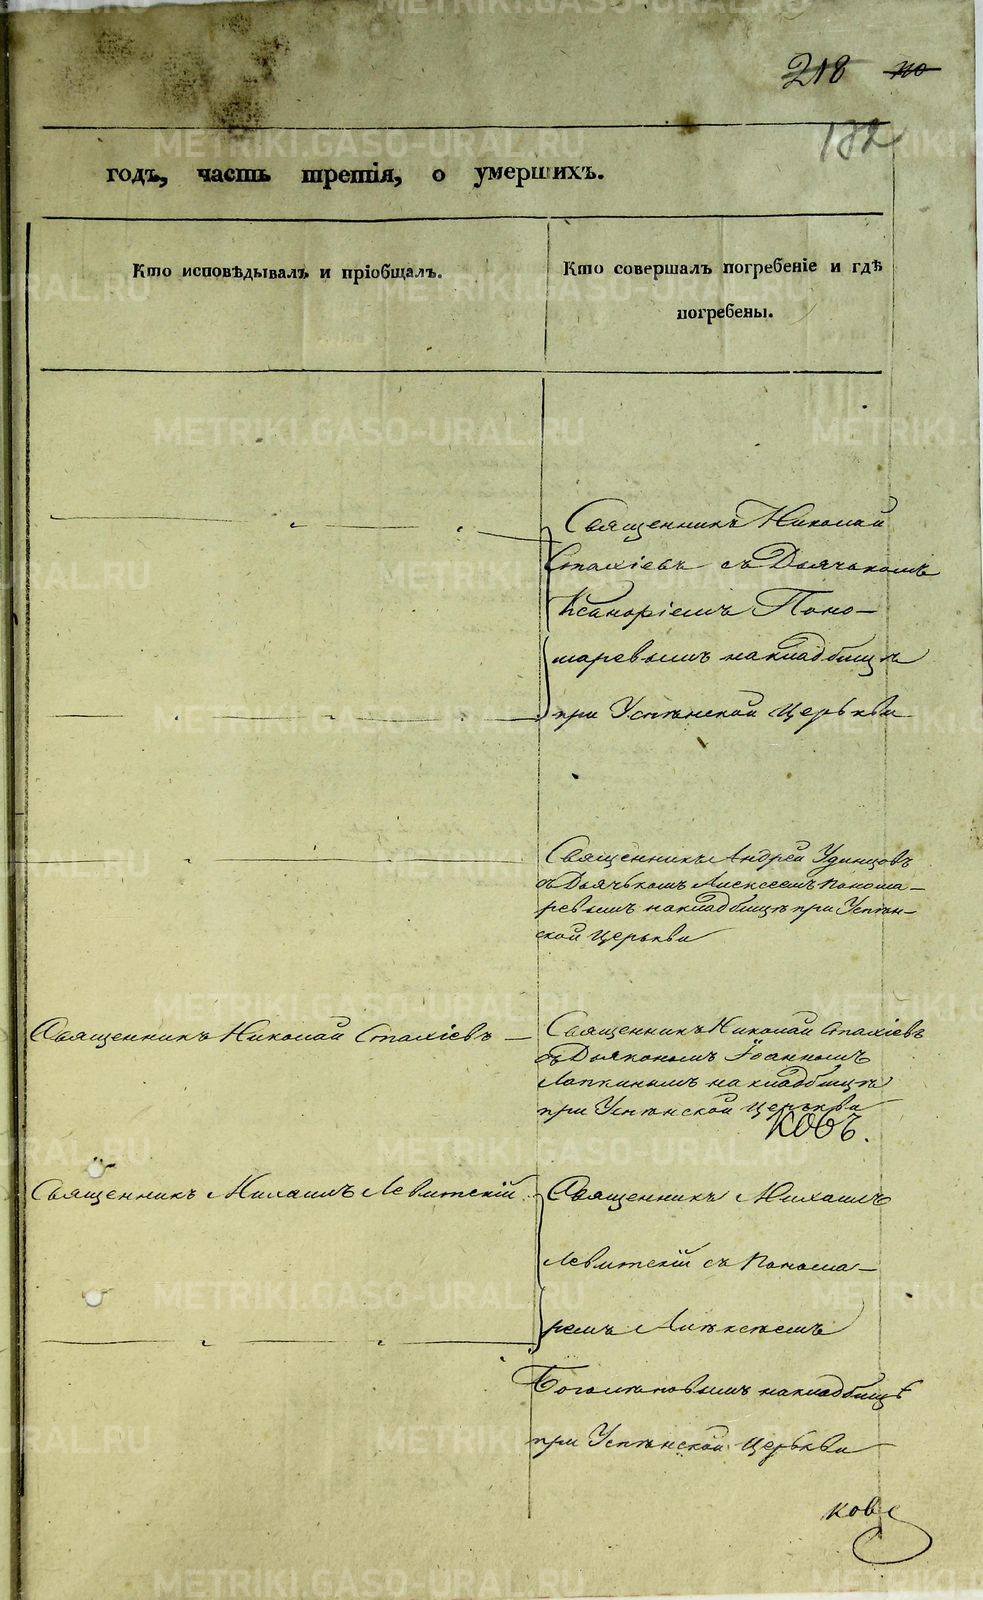 218
132
годъ, часть третія, о умершихъ.
Кто исповѣдывалъ и пріобщалъ.
Кто совершалъ погребеніе и гдѣ
погребены.
Священникъ Николай
Стахіевъ съ Дьячькомъ
Поно-
маревымъ на кладбищѣ
при Успѣнской Церькви
Священникъ Андрей Удинцовъ
съ Дьячькомъ Алексеемъ Понома-
ревымъ на кладбищѣ при Успѣн-
ской Церькви
Священникъ Николай Стахіевъ
Священникъ Николай Стахіевъ
съ Дьякономъ Іоанномъ
Лапкинымъ на кладбищѣ
при Успѣнской Церькви
ковъ.
Священникъ Михаилъ Левитскій
Священникъ Михаилъ
Левитскій съ Понома-
ремъ Алѣксѣемъ
на кладбищѣ
при Успѣнской Церькви
ков
METRIKI.GASO-URAL.RU